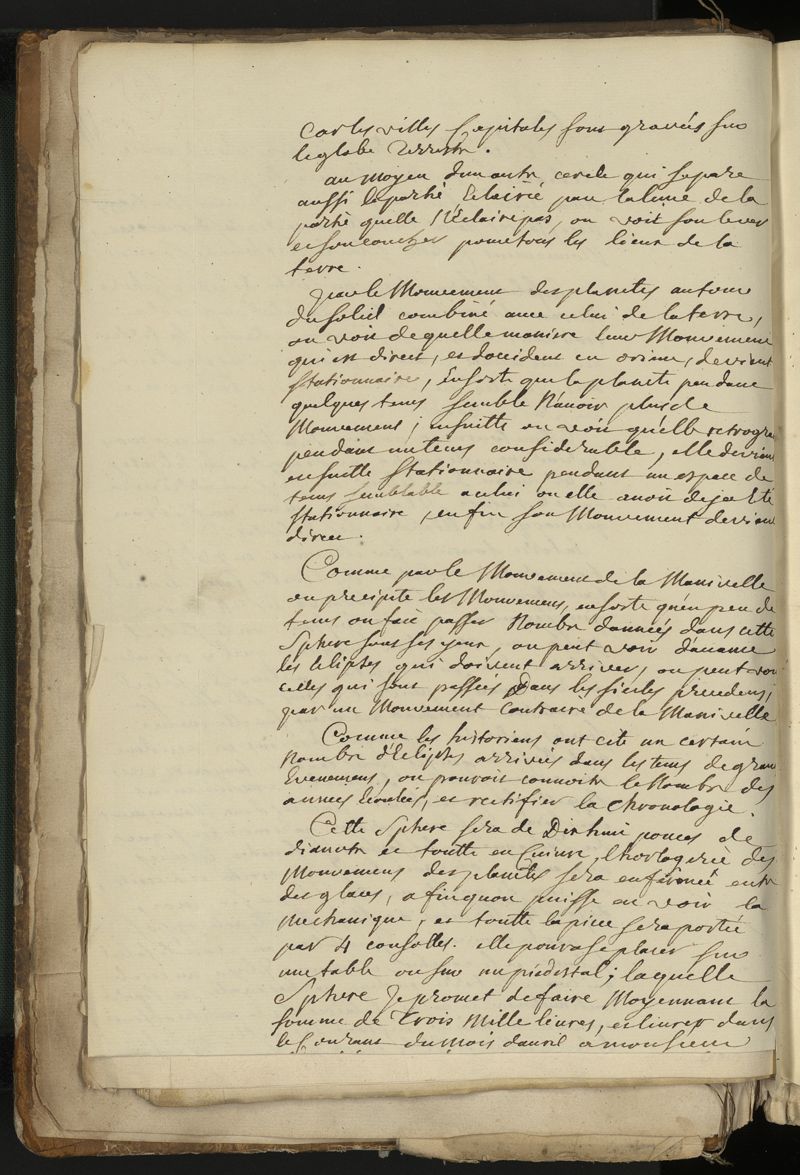 Car les villes Capitales sont gravées sur
le globe terrestre.
au moyen d'un autre cercle qui separe
aussi la partie Eclairée par la lune de la
partie quelle N'Eclaire pas, on voit son lever
et son coucher pour tous les lieux de la
terre.
par le Mouvement des planetes autour
du soleil combiné avec celui de la terre,
on voit de quelle maniere leur Mouvement
qui est direct, et d'occident en orient, devient
stationnaire, Ensorte que la planete pendant
quelques tems semble N'avoir plus de
Mouvement; ensuitte on voit qu'elle retrograde
pendant un tems considerable, elle devient
ensuitte stationnaire pendant un espace de
tems semblable a celui ou elle avoit deja Eté
stationnaire, enfin son Mouvement devient
direct.
Comme par le Mouvement de la Manivelle
on precipite les Mouvemens, ensorte qu'en peu de
tems on fait passer Nombre d'années dans cette
Sphere sous ses yeux, on peut voir d'avance
les Eclipses qui doivent arriver, on peut voir
celles qui sont passées Dans les siecles precedens,
par un Mouvement Contraire de la Manivelle
Comme les historiens ont cité un certain
Nombre d'Eclipses arrivées dans les tems de grands
Evenemens, on pourroit connoitre le Nombre des
années Ecoulées, et rectifier la chronologie.
Cette Sphere sera de Dix huit pouces de
diametre et toutte en Cuivre, l'horlogerie des
Mouvemens des planetes sera enfermée entre
des glaces, afin quon puisse en voir la
Mechanique, et toutte la piece sera portée
par 4 consolles. elle pourra se placer sur
une table ou sur un piedestal; laquelle
Sphere Je promet de faire Moyennant la
somme de Trois Mille livres, et livrer dans
le Courant du Mois d'avril a monsieur